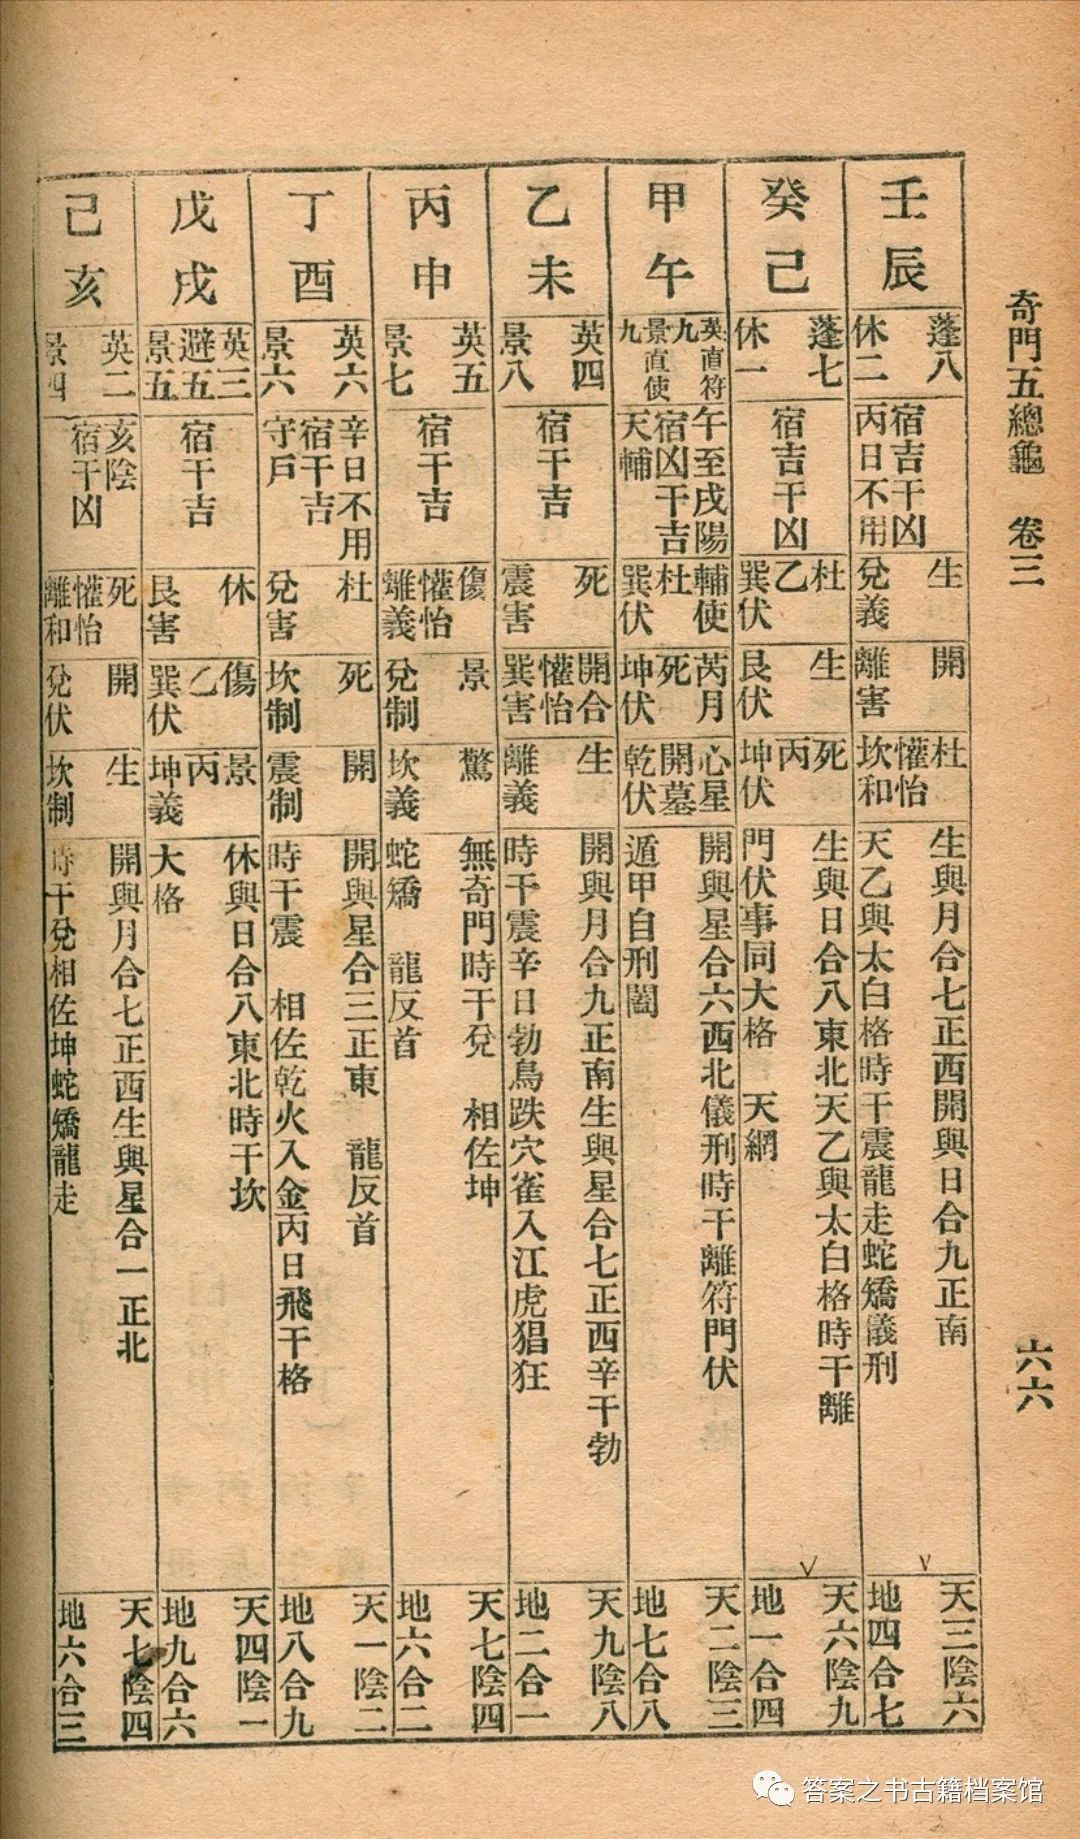 奇門五總龜　卷三
六六
壬辰
蓬八
休二
宿吉干凶
丙日不用
生
兌義
開
離害
杜
懽怡
坎和
生與月合七正西開與日合九正南
天乙與太白格時干震龍走蛇矯儀刑
天三陰六
地四合七
癸己
蓬七
休一
宿吉干凶
杜
乙
巽伏
生
艮伏
死
丙
坤伏
生與日合八東北天乙與太白格時干離
門伏事同大格　天網
天六陰九
地一合四
甲午
英直符
九
景直使
九
午至戌陽
宿凶干吉
天輔
輔使
杜
巽伏
芮月
死
坤伏
心星
開墓
乾伏
開與星合六西北儀刑時干離符門伏
遁甲自刑闔
天二陰三
地七合八
乙未
英四
景八
宿干吉
死
震害
開合
懽怡
巽害
生
離義
開與月合九正南生與星合七正西辛干勃
時干震辛日勃鳥跌穴雀入江虎猖狂
天九陰八
地二合一
丙申
英五
景七
宿干吉
傷
懽怡
離義
景
兌制
驚
坎義
無奇門時干兌　相佐坤
蛇矯　龍反首
天七陰四
地六合二
丁酉
英六
景六
辛日不用
宿干吉
守戶
杜
兌害
死
坎制
開
震制
開與星合三正東　龍反首
時干震　相佐乾火入金丙日飛干格
天一陰二
地八合九
戊戌
英三
避五
景五
宿干吉
休
艮害
傷
乙
巽伏
景
丙
坤義
休與日合八東北時干坎
大格
天四陰一
地九合六
己亥
英二
景四
亥陰
宿干凶
死
懽怡
離和
開
兌伏
生
坎制
開與月合七正西生與星合一正北
時干兌相佐坤蛇矯龍走
天七陰四
地六合三
答案之书古籍档案馆